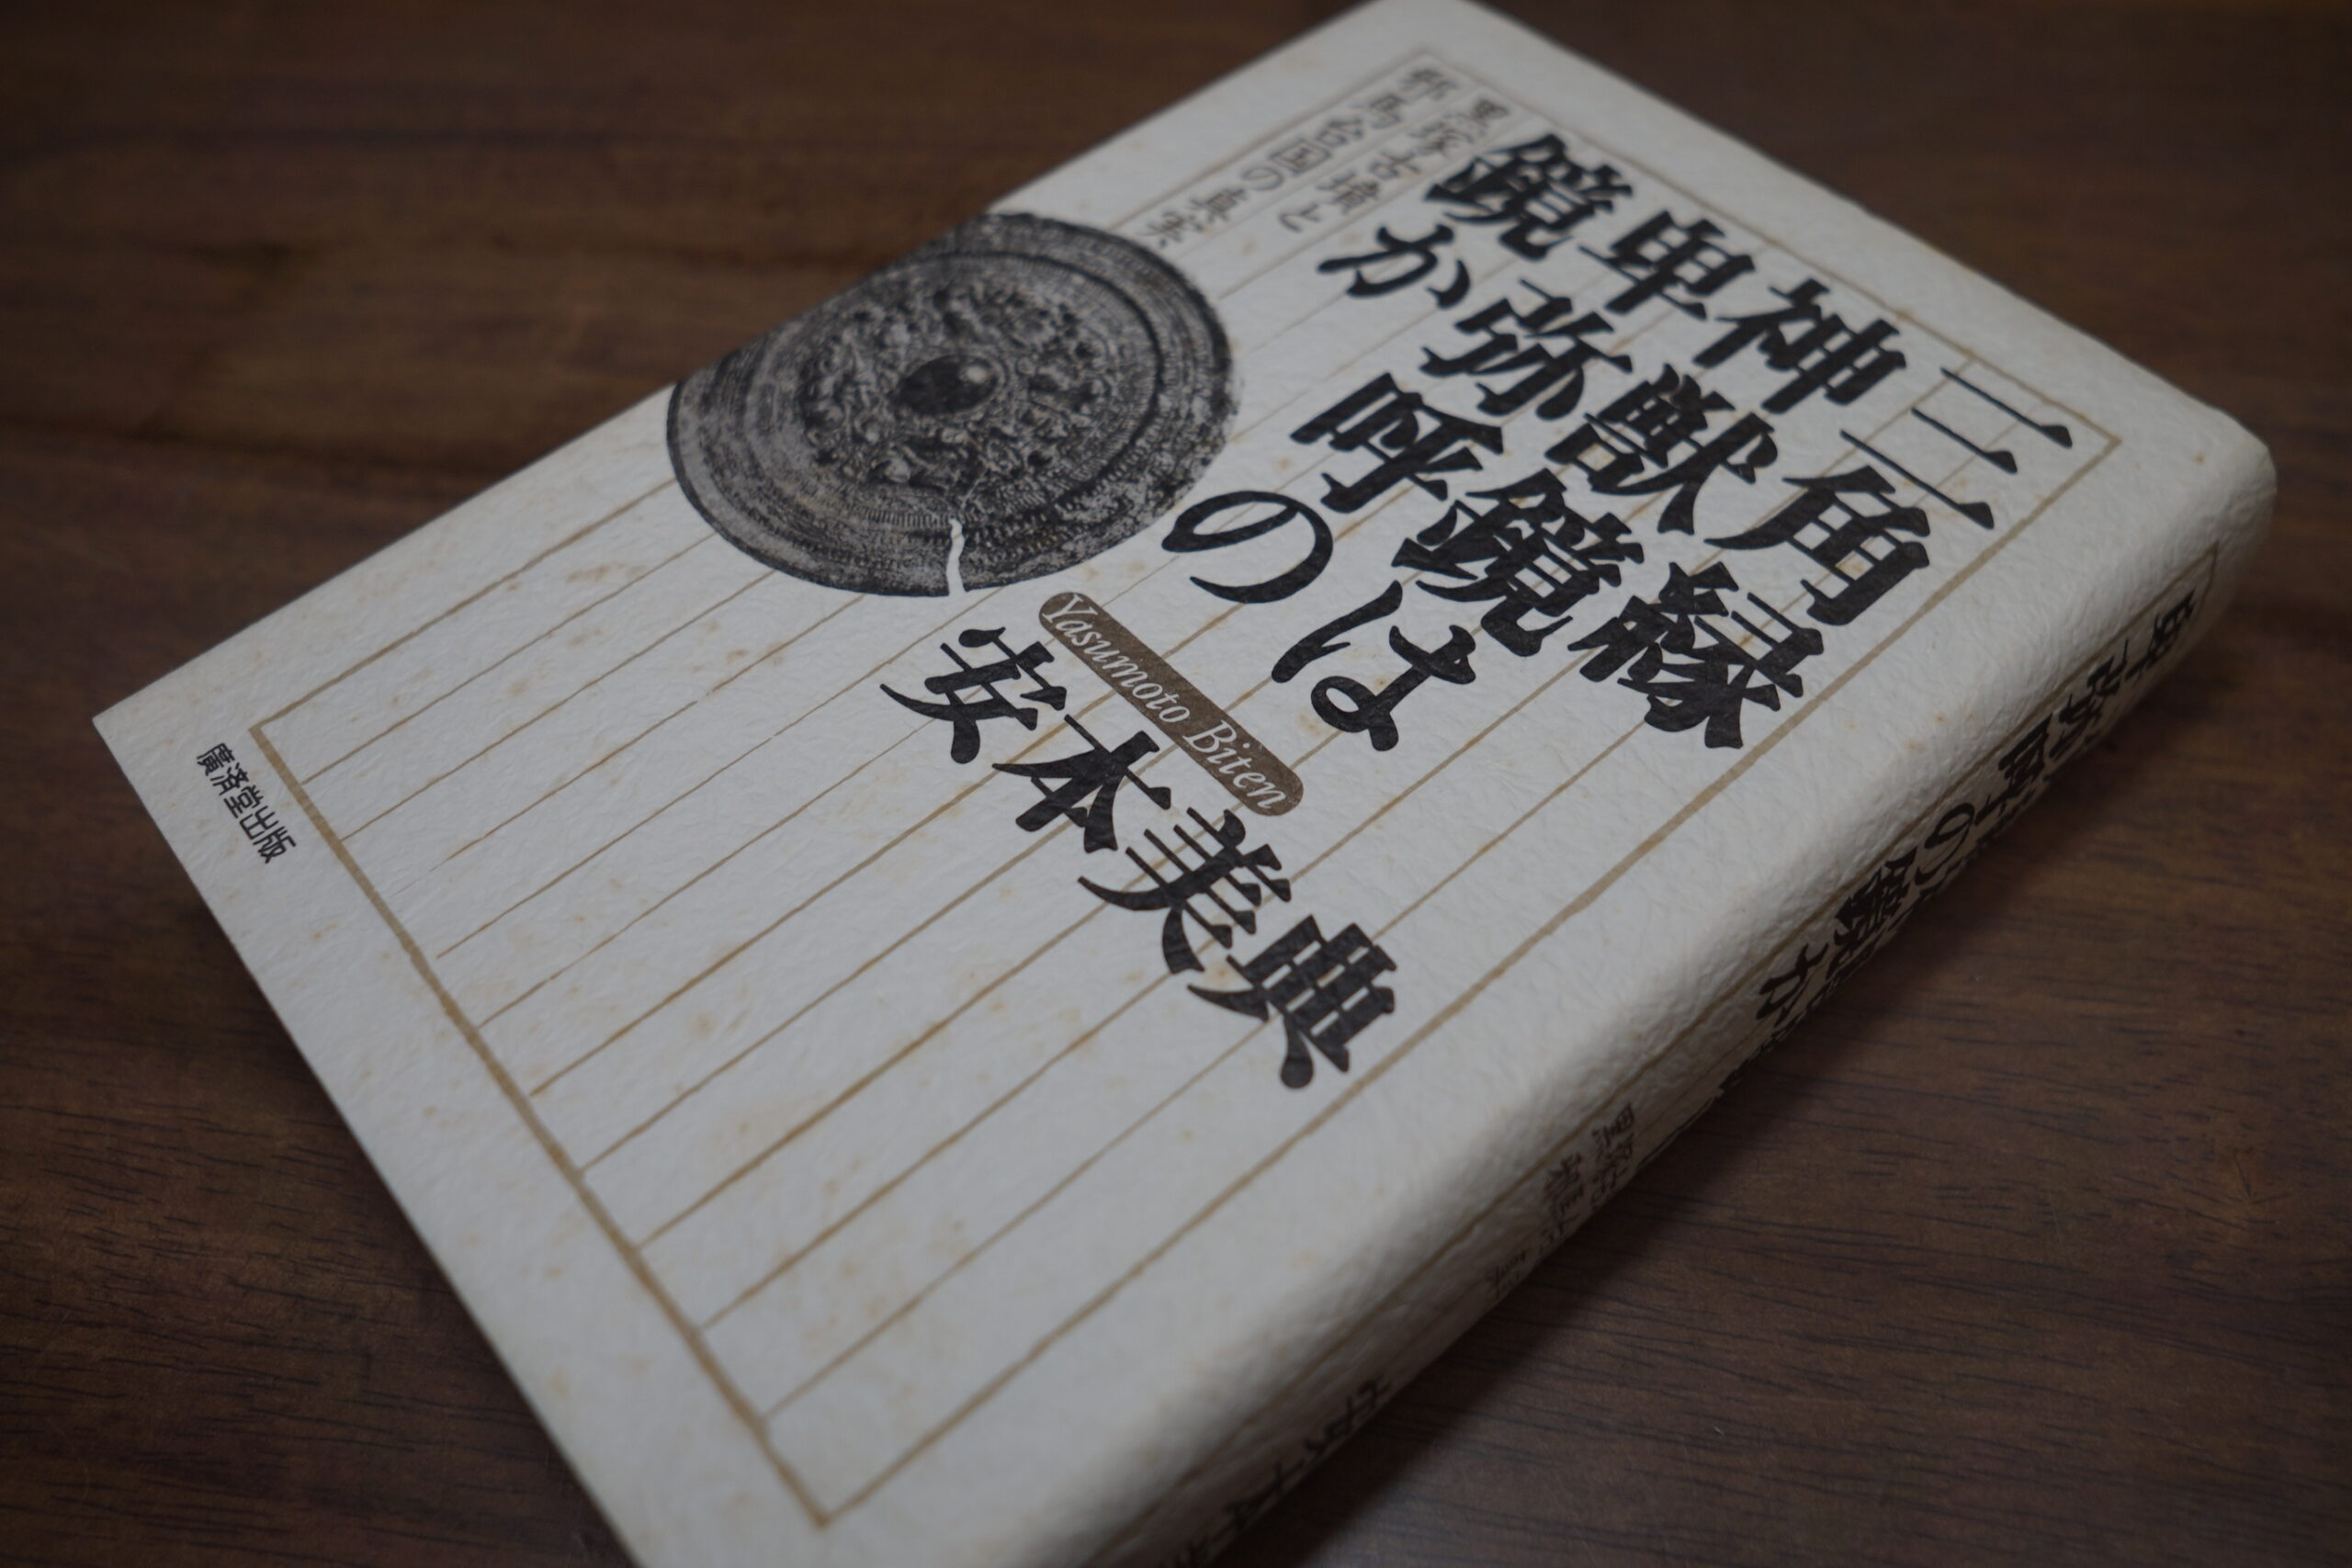 三角縁
神獣鏡は
卑弥呼の
鏡か
黒塚古墳と
邪馬台国の真実
Yasumoto Biten
安本美典
廣済堂出版
卑弥呼の鏡か